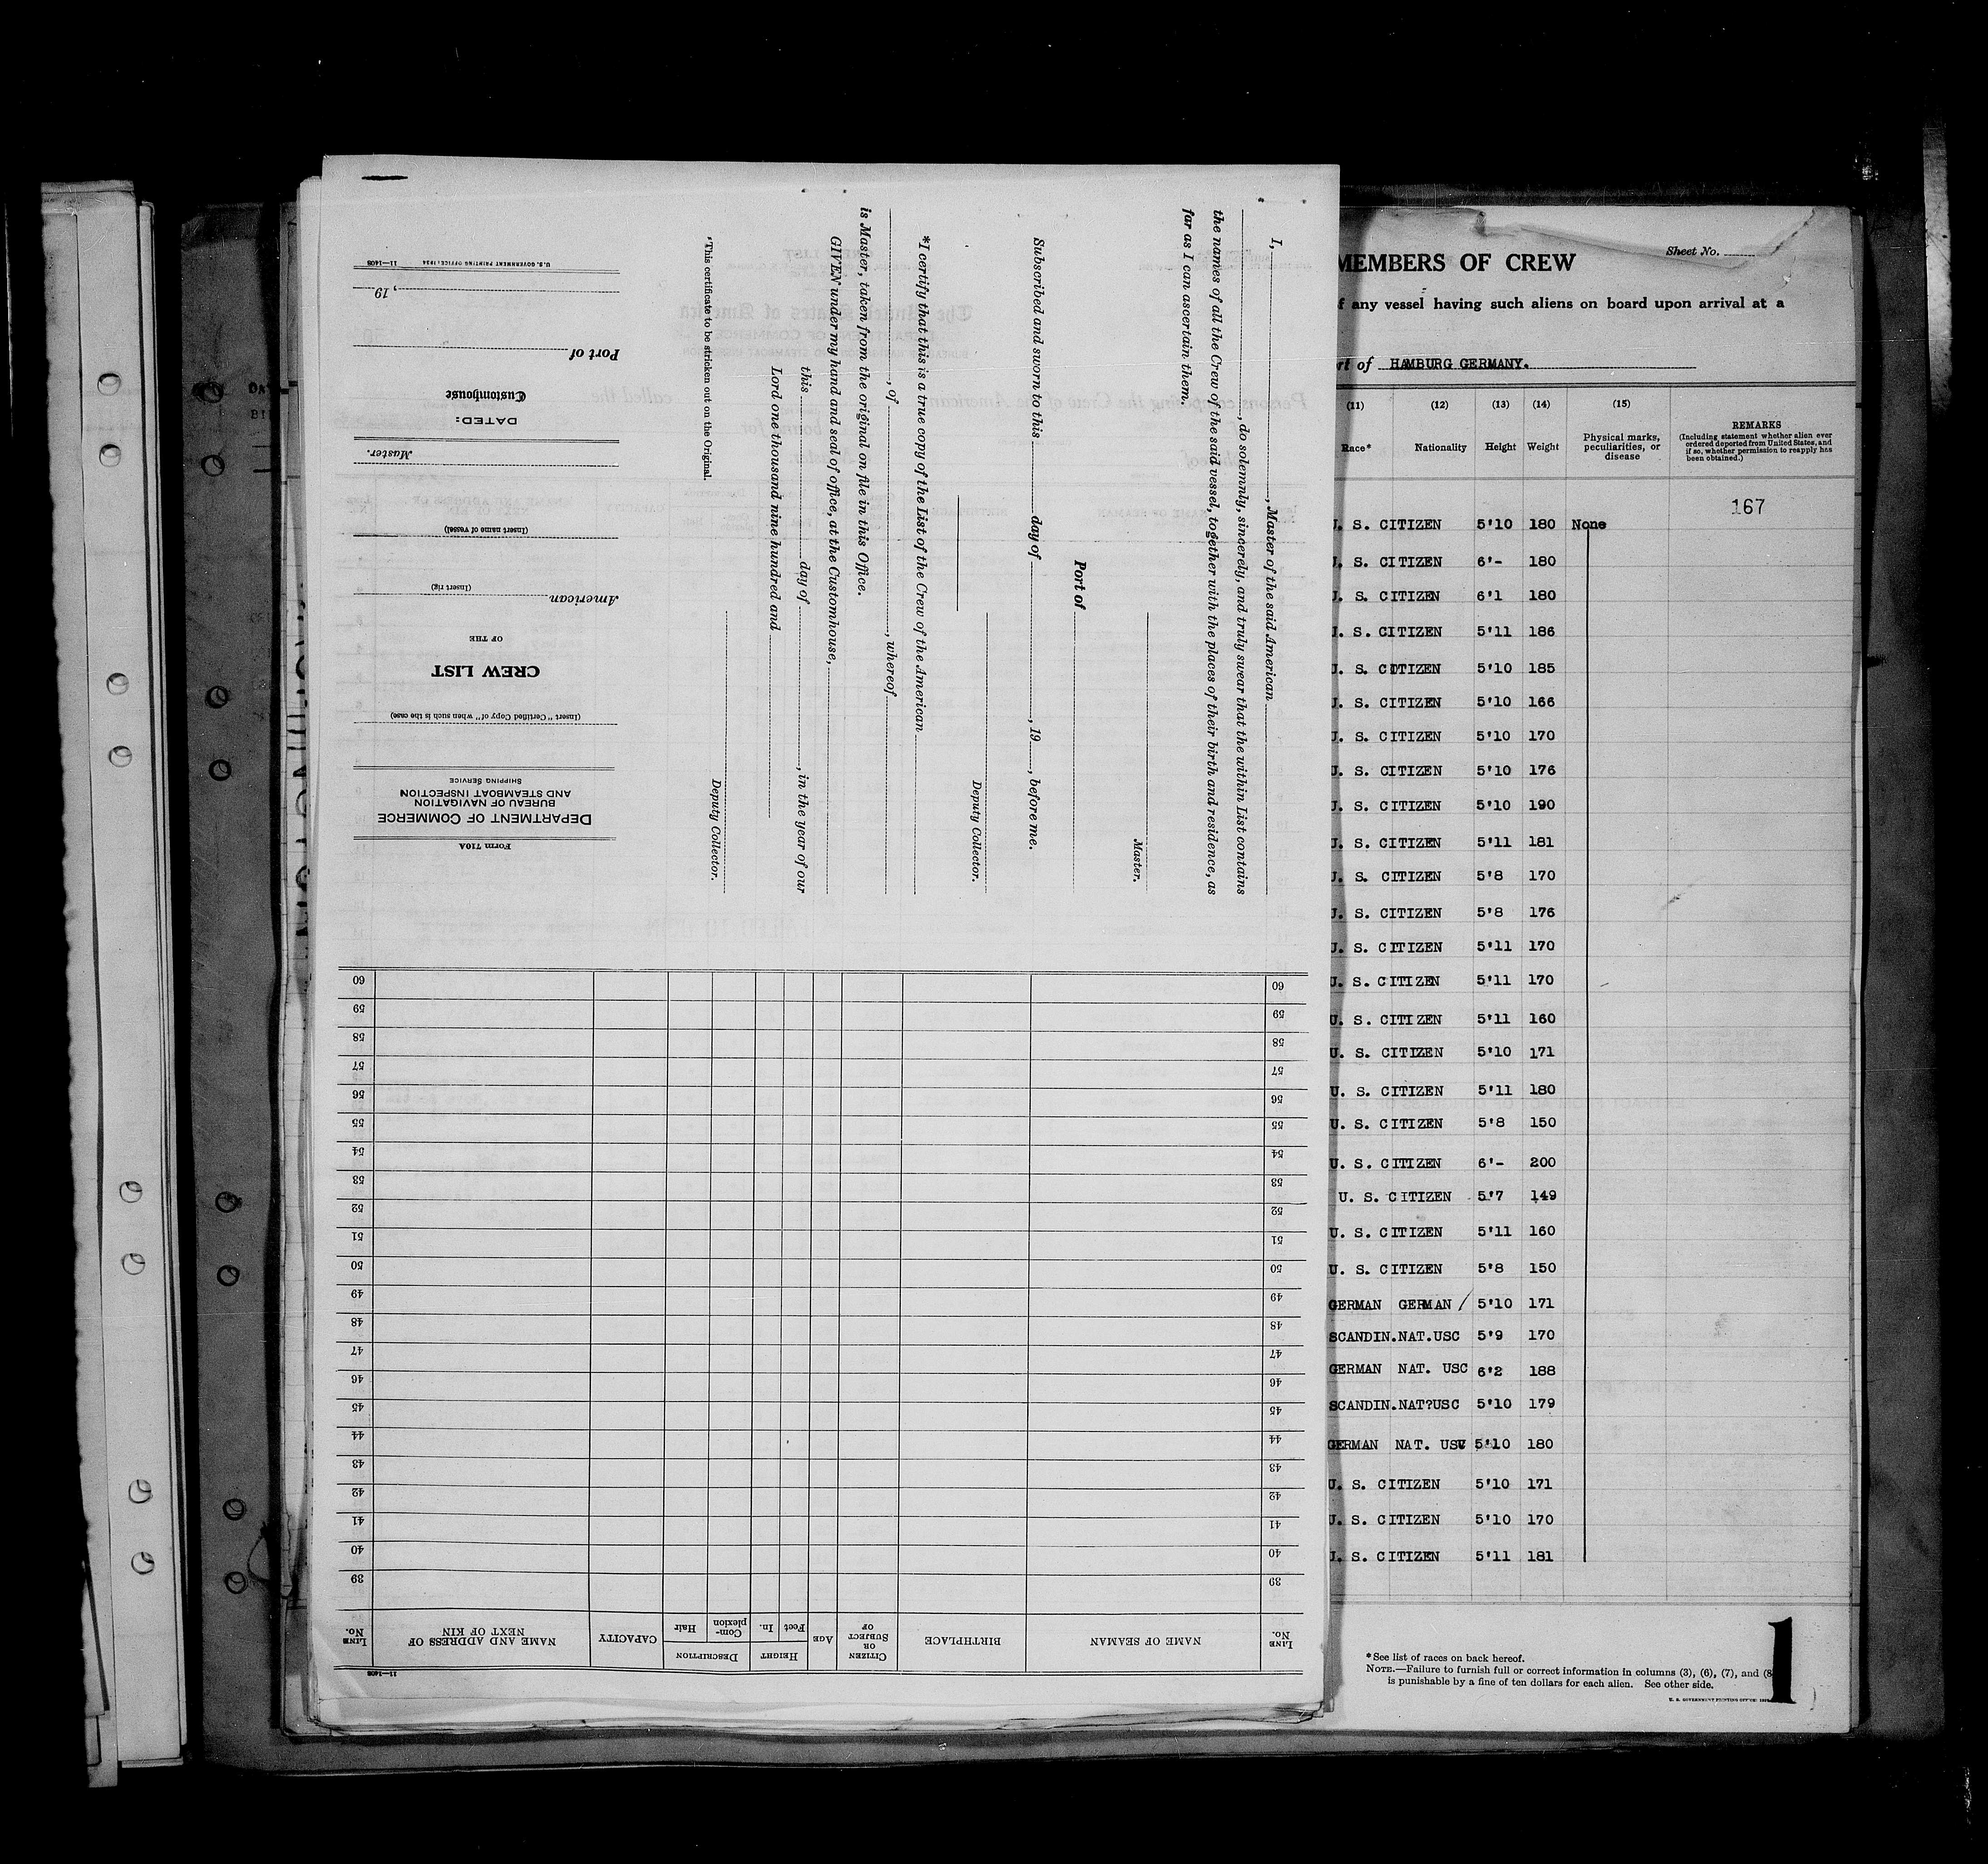 I, , Master of the said American
, do solemnly, sincerely, and truly swear that the within List contains
the names of all the Crew of the said vessel, together with the places of their birth and residence, as
far as I can ascertain them.
Master.
Port of
Subscribed and sworn to this day of , 19 , before me.
Deputy Collector.
*I certify that this is a true copy of the List of the Crew of the American
, of , whereof
is Master, taken from the original on file in this Office.
GIVEN under my hand and seal of office, at the Customhouse,
this day of , in the year of our
Lord one thousand nine hundred and
Deputy Collector.
*This certificate to be stricken out on the Original.
Form 710A
DEPARTMENT OF COMMERCE
BUREAU OF NAVIGATION
AND STEAMBOAT INSPECTION
SHIPPING SERVICE
(Insert "Certified Copy of" when such is the case)
CREW LIST
OF THE
American
(Insert rig)
(Insert name of vessel)
Master.
DATED:
Customhouse
Port of
, 19
U.S. GOVERNMENT PRINTING OFFICE: 1934 11—1408
11—1408
LINE No.
NAME OF SEAMAN
BIRTHPLACE
CITIZEN OR SUBJECT OF
AGE
HEIGHT
Feet In.
DESCRIPTION
Complexion Hair
CAPACITY
NAME AND ADDRESS OF NEXT OF KIN
LINE No.
39 39
40 40
41 41
42 42
43 43
44 44
45 45
46 46
47 47
48 48
49 49
50 50
51 51
52 52
53 53
54 54
55 55
56 56
57 57
58 58
59 59
60 60
Sheet No.
MEMBERS OF CREW
any vessel having such aliens on board upon arrival at a
of HAMBURG GERMANY.
(11) (12) (13) (14) (15)
Race* Nationality Height Weight Physical marks, peculiarities, or disease
REMARKS
(Including statement whether alien ever
ordered deported from United States, and
if so, whether permission to reapply has
been obtained.)
167
S. CITIZEN 5'10 180 None
S. CITIZEN 6'- 180
S. CITIZEN 6'1 180
S. CITIZEN 5'11 186
S. CITIZEN 5'10 185
S. CITIZEN 5'10 166
S. CITIZEN 5'10 170
S. CITIZEN 5'10 176
S. CITIZEN 5'10 190
S. CITIZEN 5'11 181
S. CITIZEN 5'8 170
S. CITIZEN 5'8 176
S. CITIZEN 5'11 170
S. CITIZEN 5'11 170
U. S. CITIZEN 5'11 160
U. S. CITIZEN 5'10 171
U. S. CITIZEN 5'11 180
U. S. CITIZEN 5'8 150
U. S. CITIZEN 6'- 200
U. S. CITIZEN 5'7 149
U. S. CITIZEN 5'11 160
U. S. CITIZEN 5'8 150
GERMAN GERMAN / 5'10 171
SCANDIN.NAT.USC 5'9 170
GERMAN NAT. USC 6'2 188
SCANDIN.NAT?USC 5'10 179
GERMAN NAT. USC 5'10 180
U. S. CITIZEN 5'10 171
U. S. CITIZEN 5'10 170
S. CITIZEN 5'11 181
*See list of races on back hereof.
NOTE.—Failure to furnish full or correct information in columns (3), (6), (7), and (8
is punishable by a fine of ten dollars for each alien. See other side.
U. S. GOVERNMENT PRINTING OFFICE:
1